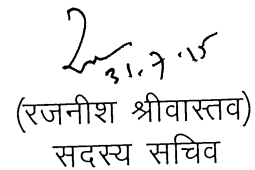 31.7.15
(रजनीश श्रीवास्तव)
सदस्य सचिव